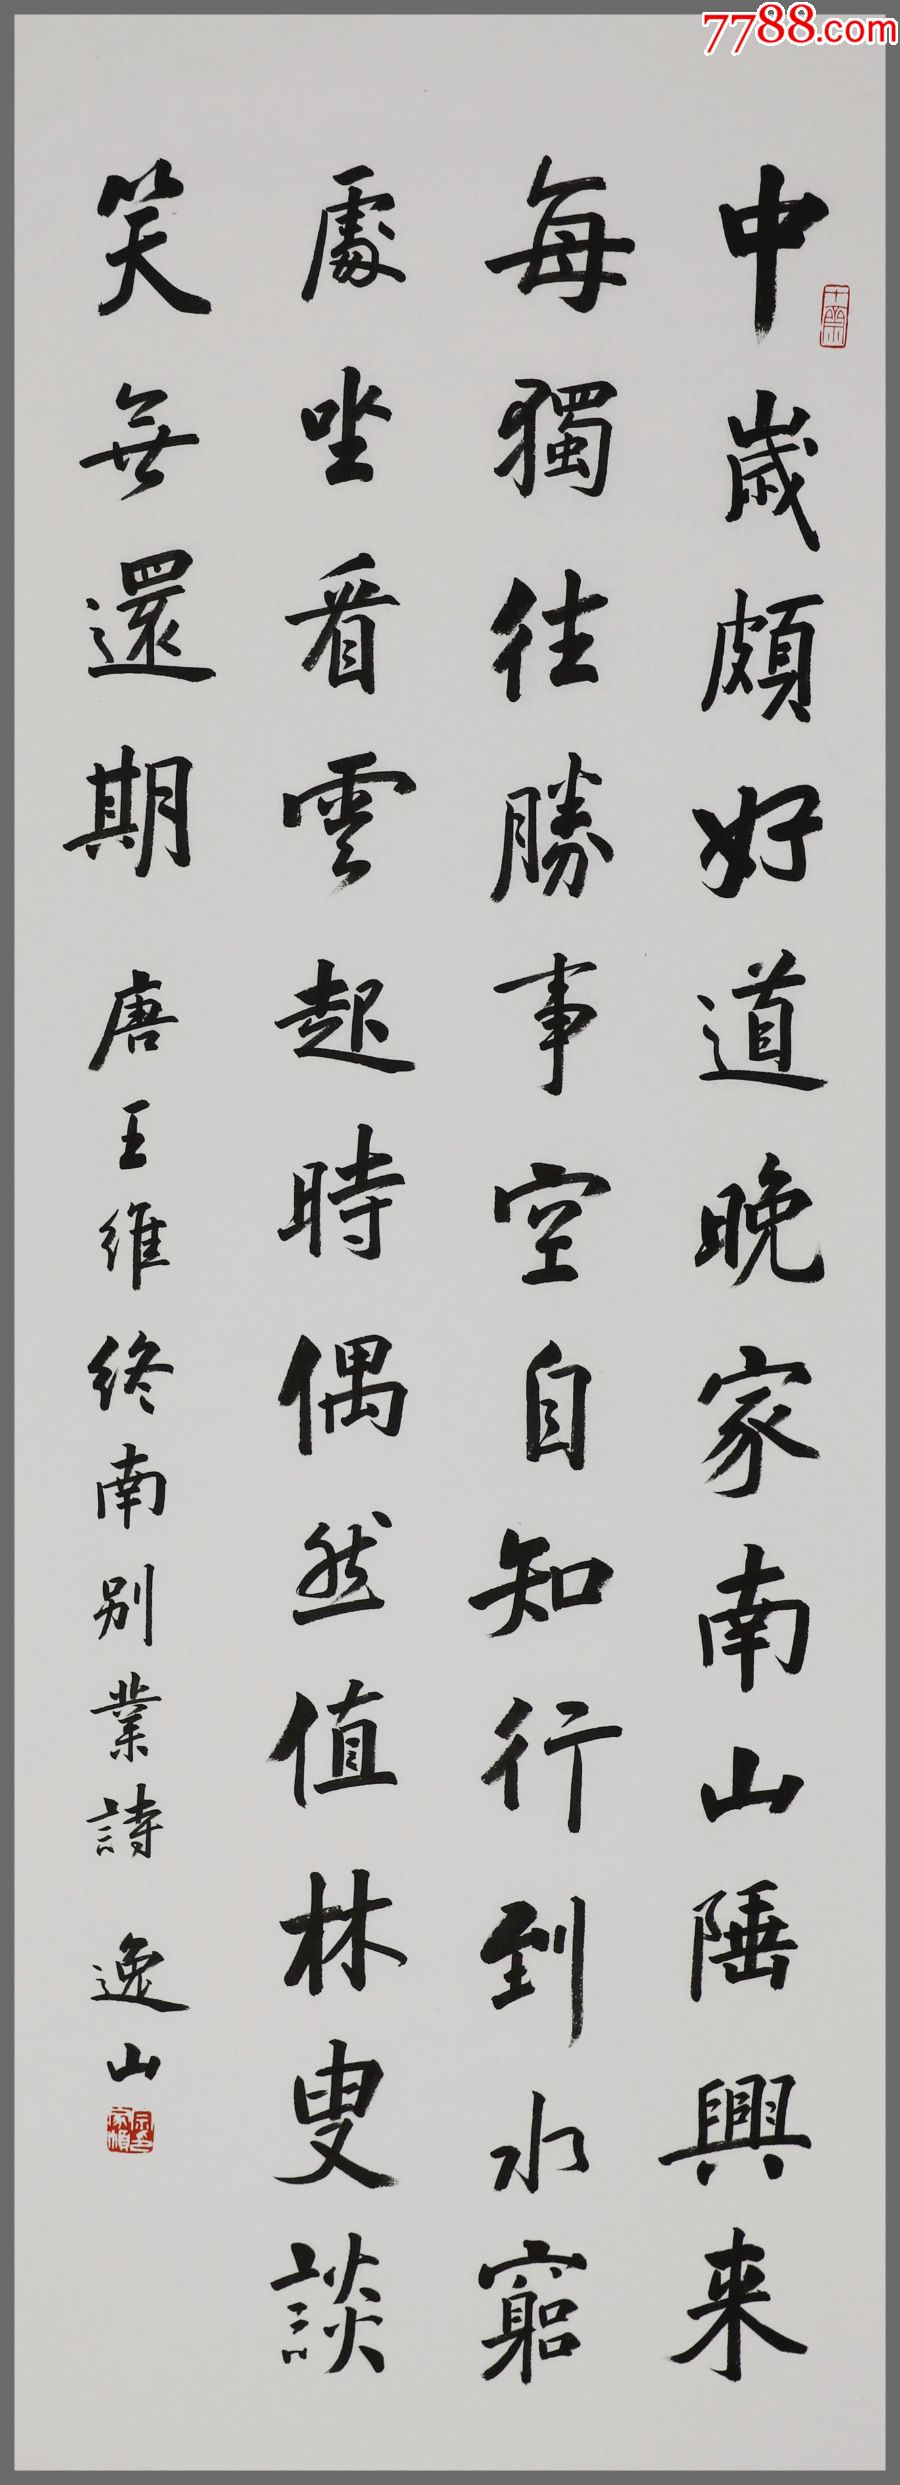 7788.com
中歲頗好道晚家南山陲興来
每獨往勝事空自知行到水窮
處坐看雲起時偶然值林叟談
笑無還期
唐王維終南別業詩 逸山